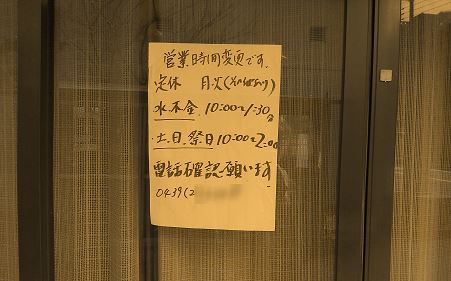 営業時間変更です.
定休 月.火(その他あり)
水.木.金. 10:00~1:30
・土.日.祭日 10:00~2:00
電話確認願います
0439(2